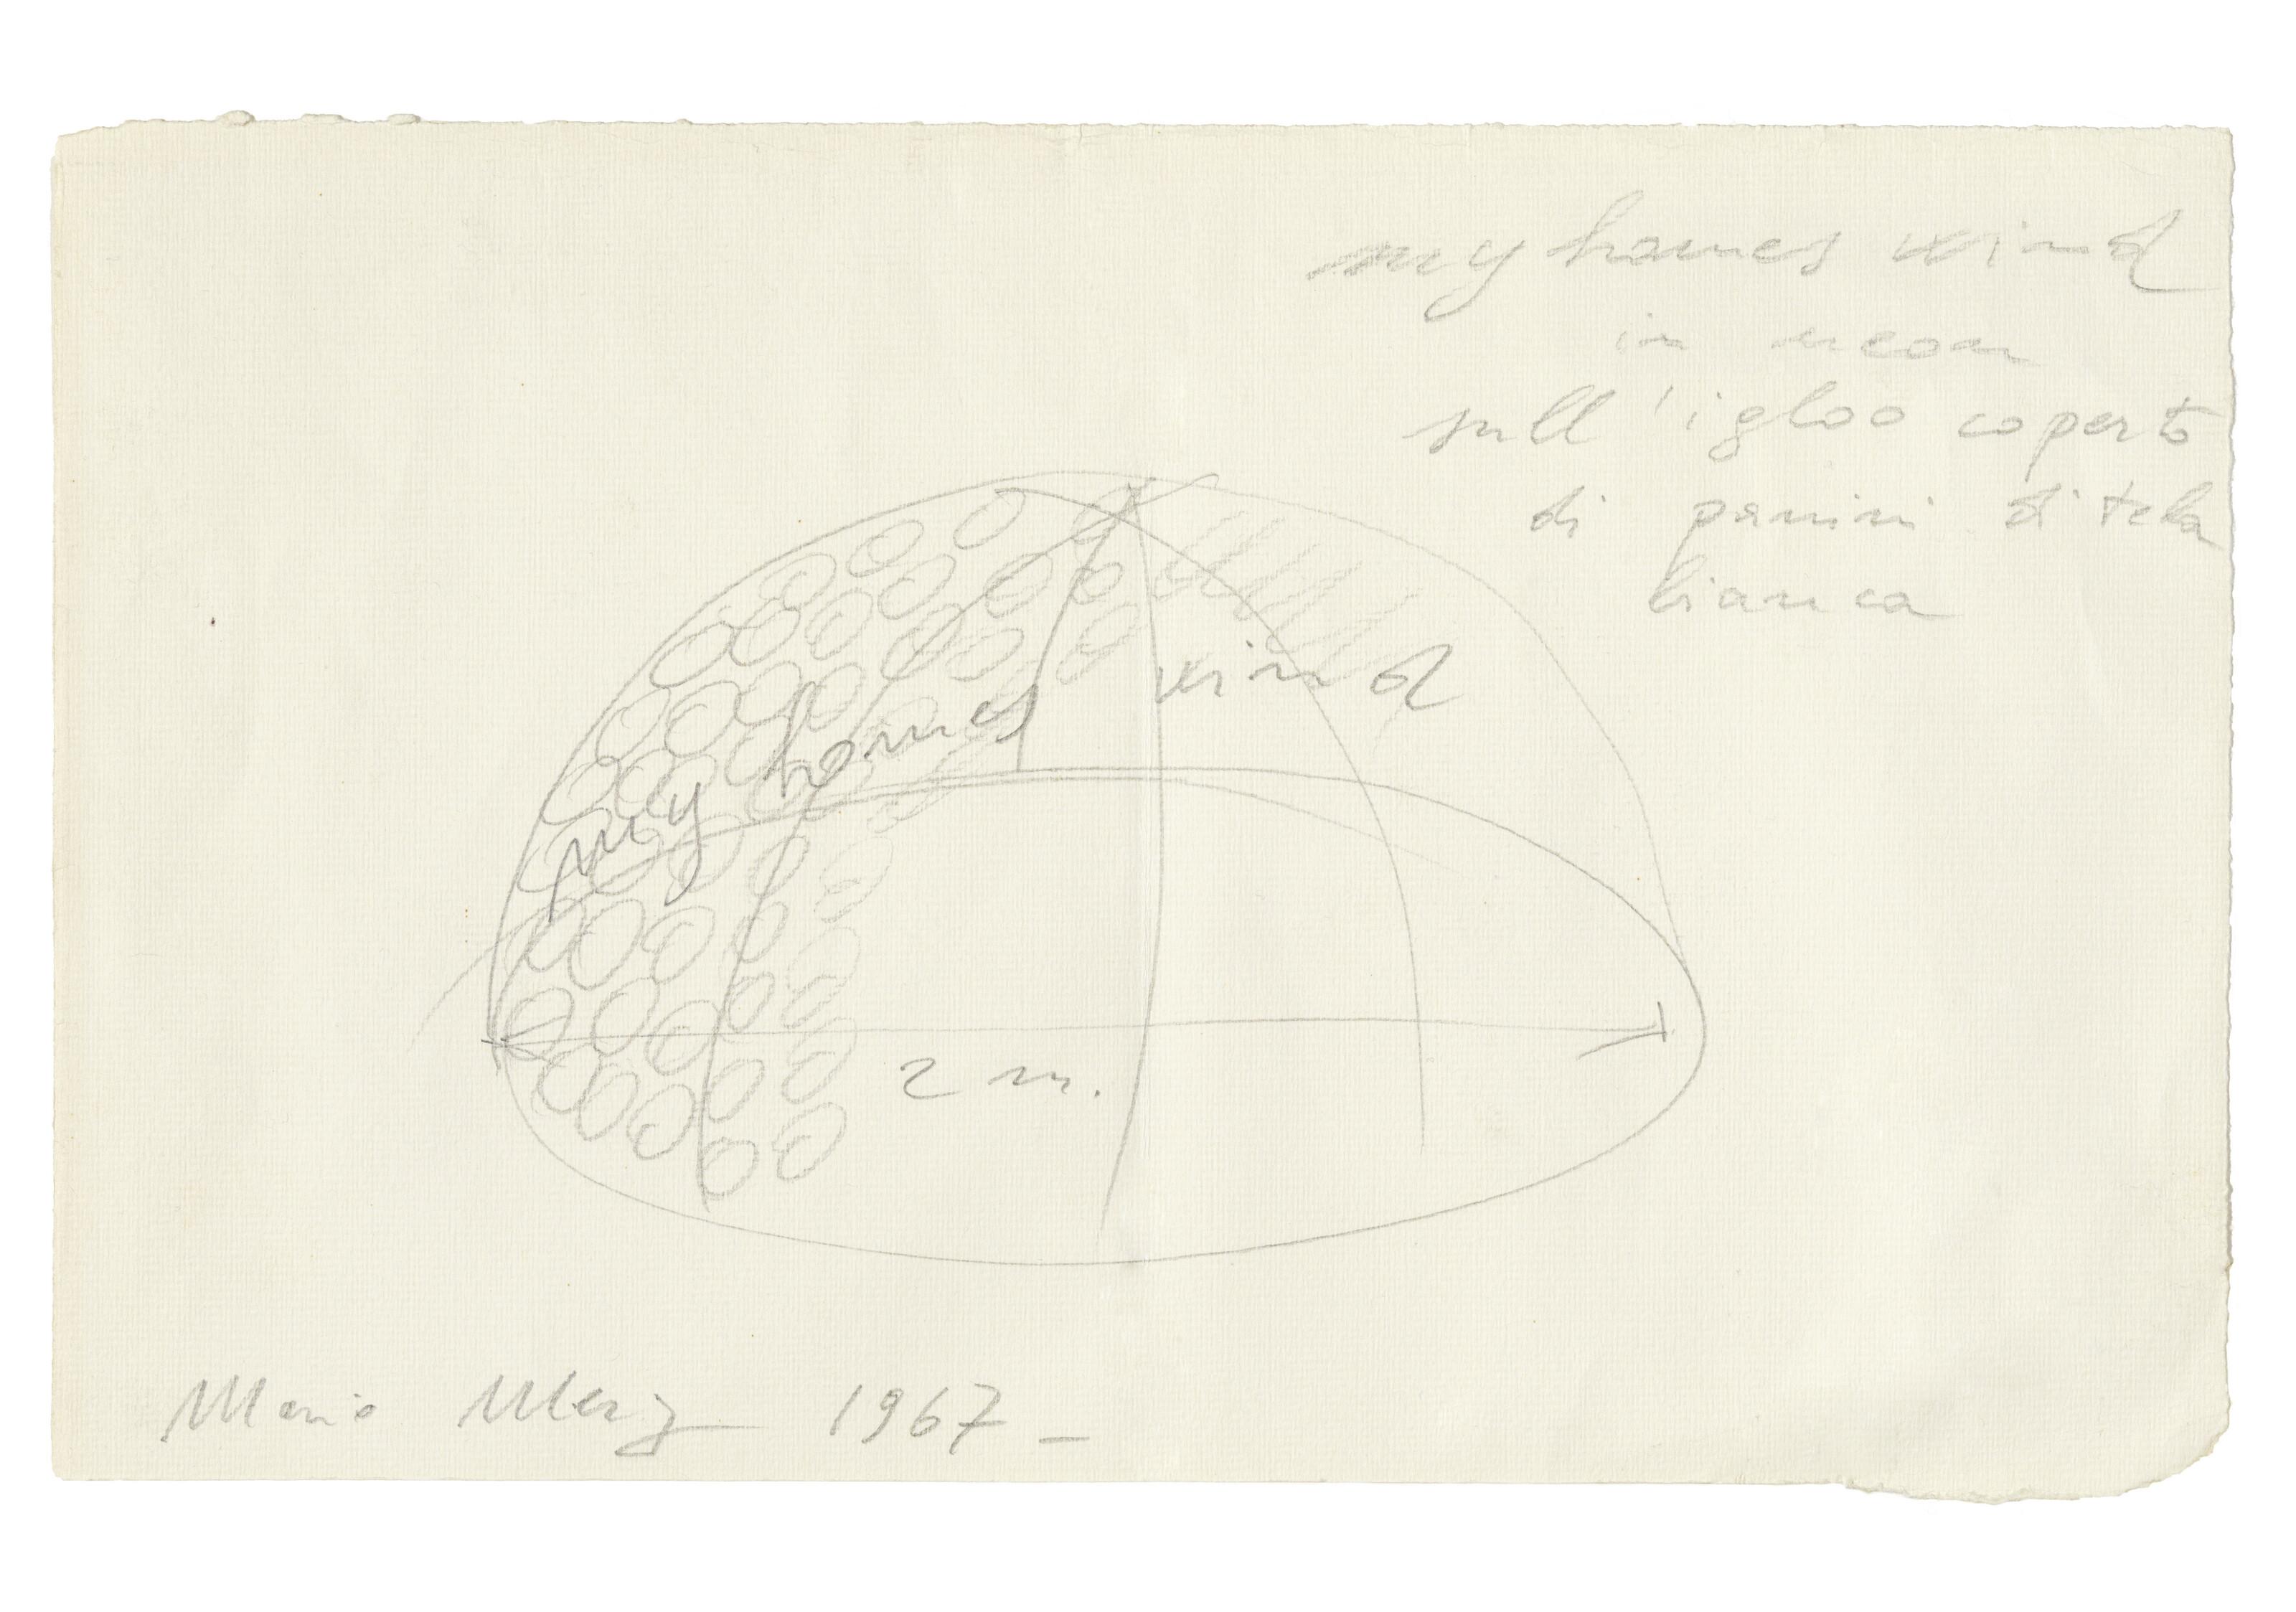 my homes wind
in neon
sull'igloo coperto
di panini di tela
bianca
my homes wind
2 m.
Mario Merz 1967 –